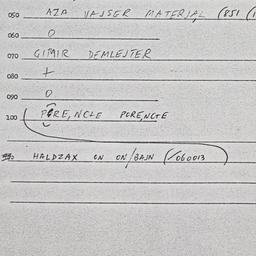 050 AZA VAJSER MATERIJAL (851
060 0
070 GIMIR DEMLEJTER
080 +
090 0
100 PORE,NCLE PORE,NGTE
HALDZAX ON ON/BAJN (/060013